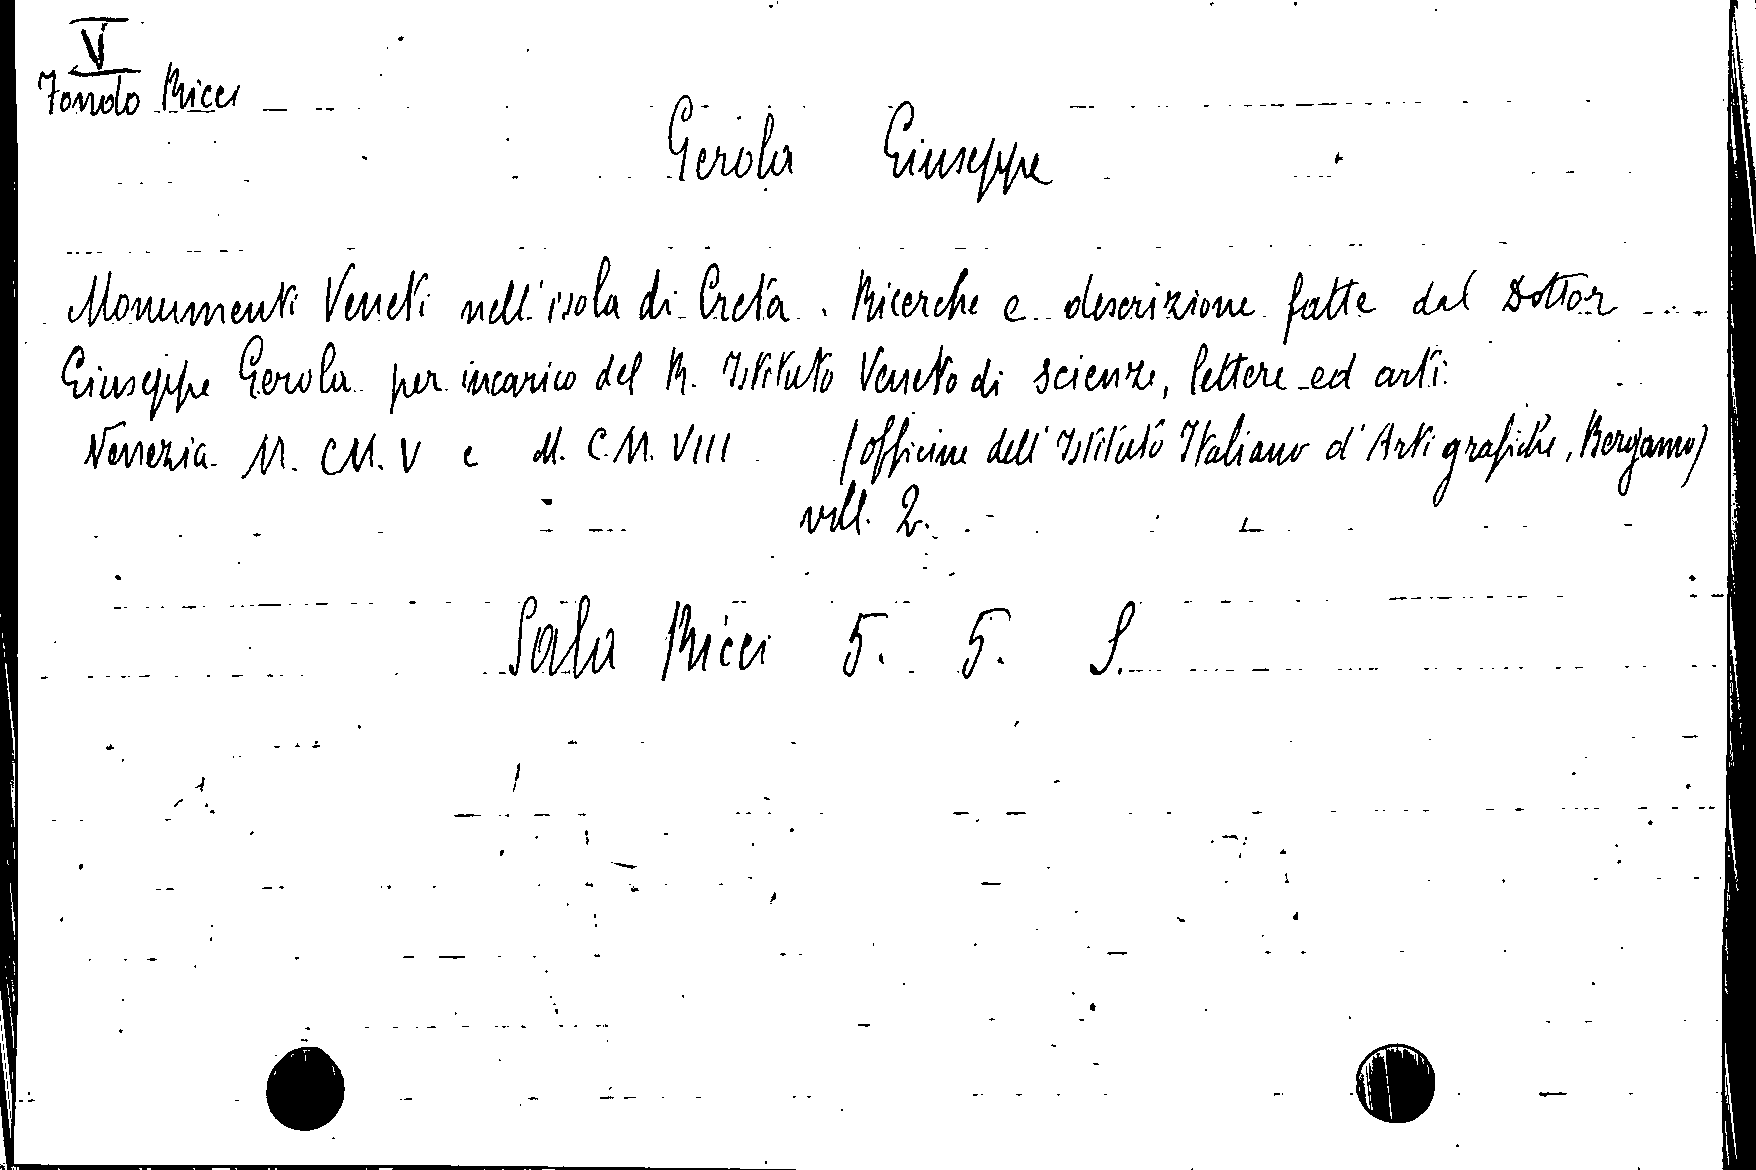 V
Fondo Ricci
Gerola Giuseppe
Monumenti Veneti nell'isola di Creta. Ricerche e descrizione fatte dal Dottor
Giuseppe Gerola per incarico del R. Istituto Veneto di scienze, lettere ed arti.
Venezia. M. CM. V e M. C.M. VIII (officine dell'Istituto Italiano d'Arti grafiche, Bergamo)
voll. 2.
Sala Ricci 5. 5. S.